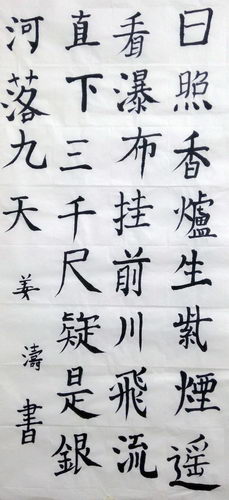 日照香爐生紫煙遥
看瀑布挂前川飛流
直下三千尺疑是銀
河落九天
姜濤書